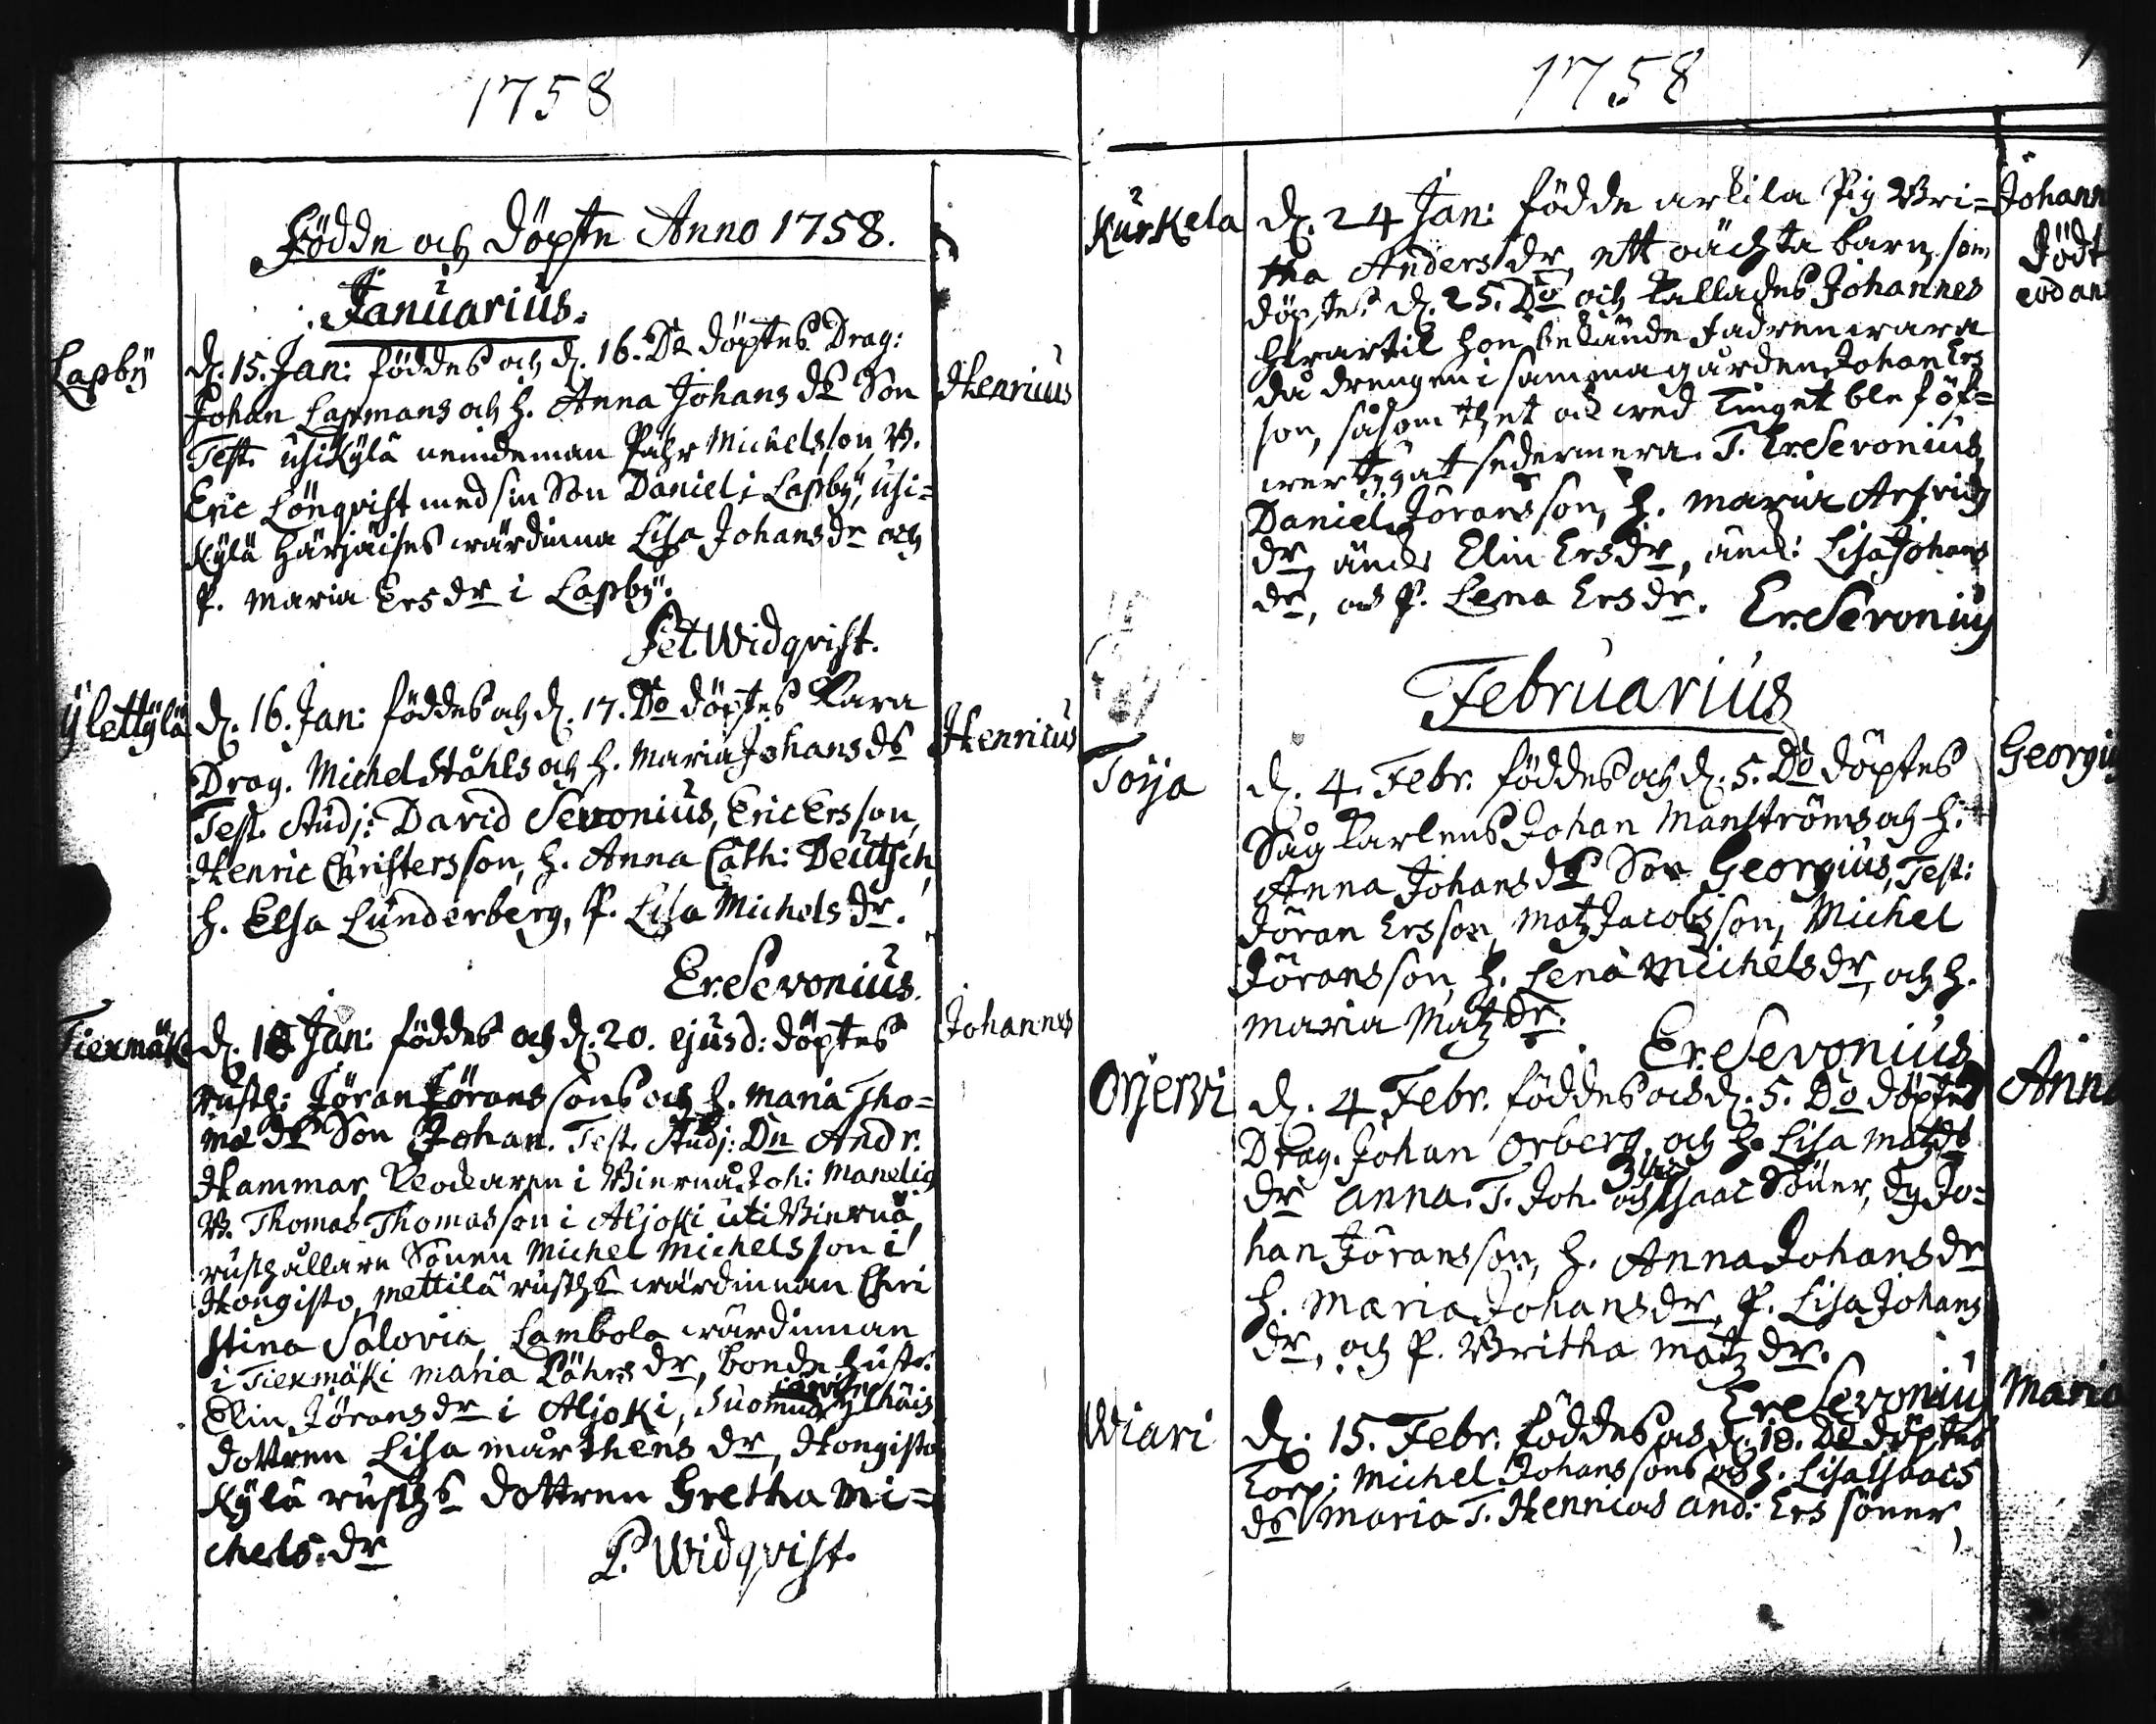 1758
Födde och Döpte Anno 1758.
Januarius.
Lapby
d. 15. Jan: föddes och d. 16. Do döptes Drag:
Henricus
Johan Lapmans och h. Anna Johans ds Son
Test. Usikylä nemdeman Påhr Michelsson, B.
Eric Lönqvist med sin Son Daniel i Lapby, Usi=
kylä Härjäises wärdinna Lisa Johansdr och
P. Maria Ersdr i Lapby.
Pet Widqvist.
ÿlettÿlä
d. 16. Jan: föddes och d. 17. Do döptes Kara
Henricus
Drag. Michel Ståhls och h. Maria Johans ds
Test. Studj: David Sevonius, Eric Ersson,
Henric Christersson, h. Anna Cath: Deutsch,
h. Elsa Lunderberg, P. Lisa Michelsdr.
Er. Sevonius.
Tiexmäki
d. 18 Jan: föddes och d. 20. ejusd: döptes
Johannes
rusth: Jöran Jöranssons och h. Maria Tho=
mæ ds Son Johan. Test. Studj: Dn Andr.
Hammar, Klockaren i Bierno Joh: Manelig
B. Thomas Thomasson i Aljoki uti Bierno,
rusthållare Sonen Michel Michelsson i
Hongisto, Mettilä rusths wärdinnan Chri
stina Salovia, Lambola wärdinnan
i Tiexmäki Maria Påhrsdr, bonde hustr.
Elin Jöransdr i Aljoki,
dottren Lisa Mårthens dr, Hongisto
kylä rusths dottren Gretha Mi=
chels dr
P. Widqvist.
1758
Kurkela
d. 24 Jan: födde arkila Pig Bri=
Johann
tha Anders dr, ett oächta barn, som
Födt
döptes d. 25. Do och kallades Johannes
hwartil hon bekände fadren wara
då drengen i samma gården Johan Ers
son, såsom thet ock wed Tinget blef öf=
wertygat sedermera. T. Er. Sevonius,
Daniel Jöransson, h. Maria Arfvid
dr, änck: Elin Ersdr, änck: Lisa Johans
dr, och P. Lena Ersdr.
Er. Sevonius
Februarius
Toija
d. 4. Febr. föddes och d. 5. Do döptes
Georgiu
Såg Karlens Johan Manströms och h.
Anna Johans ds Son Georgius, Test:
Jöran Ersson, Matz Jacobsson, Michel
Jöransson, h. Lena Michelsdr, och h.
Maria Matzdr.
Er. Sevonius
Orjerwi
d. 4 Febr. föddes och d. 5. Do döptes
Anna
Drag. Johan Orberg och h. Lisa Matzds
dr Anna. T. Joh. och Isaac Söner, dg Jo=
han Jöransson, h. Anna Johansdr
h. Maria Johansdr, P. Lisa Johans
dr, och P. Britha Matz dr.
Er. Sevonius
Wiari
d. 15. Febr. föddes och d. 18. Do döptes
Maria
Torp: Michel Johanssons och h. Lisa Isaacs
ds Maria T. Henric And: Ers söner,